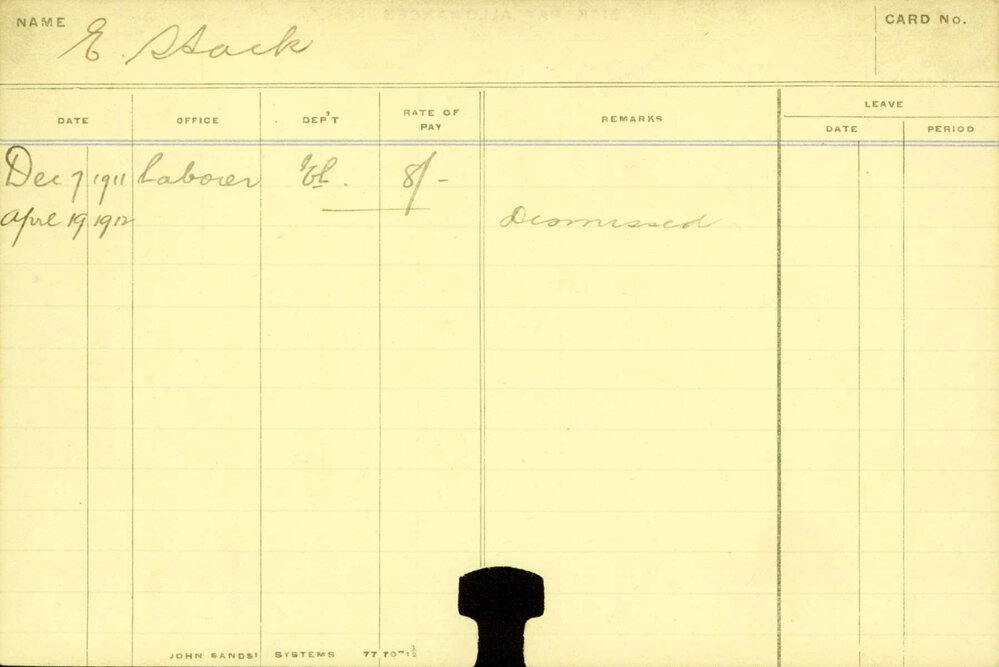 NAME E. Stack CARD No.
DATE OFFICE DEP'T RATE OF PAY REMARKS LEAVE
DATE PERIOD
Dec 7 1911 Laborer El. 8/-
Apre 19 1912 Dismissed
JOHN SANDS' SYSTEMS 77 70-1½